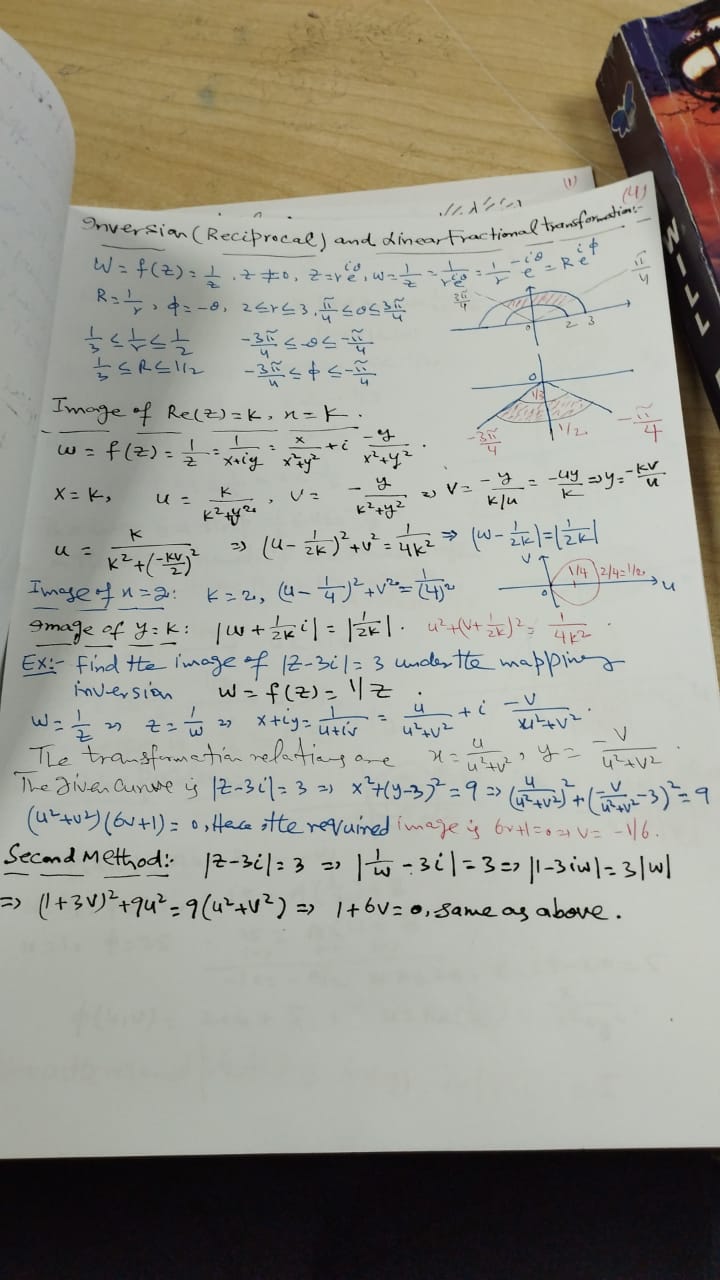 (1)
(4)
Inversion (Reciprocal) and Linear Fractional transformation:-
W = f(z) = 1/z, z ≠ 0, z = re^{iθ}, w = 1/z = 1/(re^{iθ}) = 1/r e^{-iθ} = R e^{iφ}
R = 1/r, φ = -θ, 2 ≤ r ≤ 3, π/4 ≤ θ ≤ 3π/4
3π/4 π/4
0 2 3
1/3 ≤ 1/r ≤ 1/2 -3π/4 ≤ -θ ≤ -π/4
1/3 ≤ R ≤ 1/2 -3π/4 ≤ φ ≤ -π/4
0
1/3
-3π/4 1/2 -π/4
Image of Re(z) = k, x = k.
w = f(z) = 1/z = 1/(x+iy) = x/(x²+y²) + i -y/(x²+y²).
x = k, u = k/(k²+y²), v = -y/(k²+y²) ⇒ v = -y/(k/u) = -uy/k ⇒ y = -kv/u
u = k/(k²+(-kv/2)²) ⇒ (u - 1/2k)² + v² = 1/4k² ⇒ |w - 1/2k| = |1/2k|
Image of x = 2: k = 2, (u - 1/4)² + v² = 1/(4)²
v 0 1/4 2/4 = 1/2 u
Image of y = k: |w + 1/2k i| = |1/2k|. u² + (v + 1/2k)² = 1/4k².
Ex:- Find the image of |z-3i| = 3 under the mapping
inversion w = f(z) = 1/z.
w = 1/z ⇒ z = 1/w ⇒ x+iy = 1/(u+iv) = u/(u²+v²) + i -v/(u²+v²).
The transformation relations are x = u/(u²+v²), y = -v/(u²+v²).
The given curve is |z-3i| = 3 ⇒ x²+(y-3)² = 9 ⇒ (u/(u²+v²))² + (-v/(u²+v²) - 3)² = 9
(u²+v²)(6v+1) = 0, Hece, the required image is 6v+1 = 0 ⇒ v = -1/6.
Second Method:- |z-3i| = 3 ⇒ |1/w - 3i| = 3 ⇒ |1-3iw| = 3|w|
⇒ (1+3v)² + 9u² = 9(u²+v²) ⇒ 1+6v = 0, same as above.
WILL